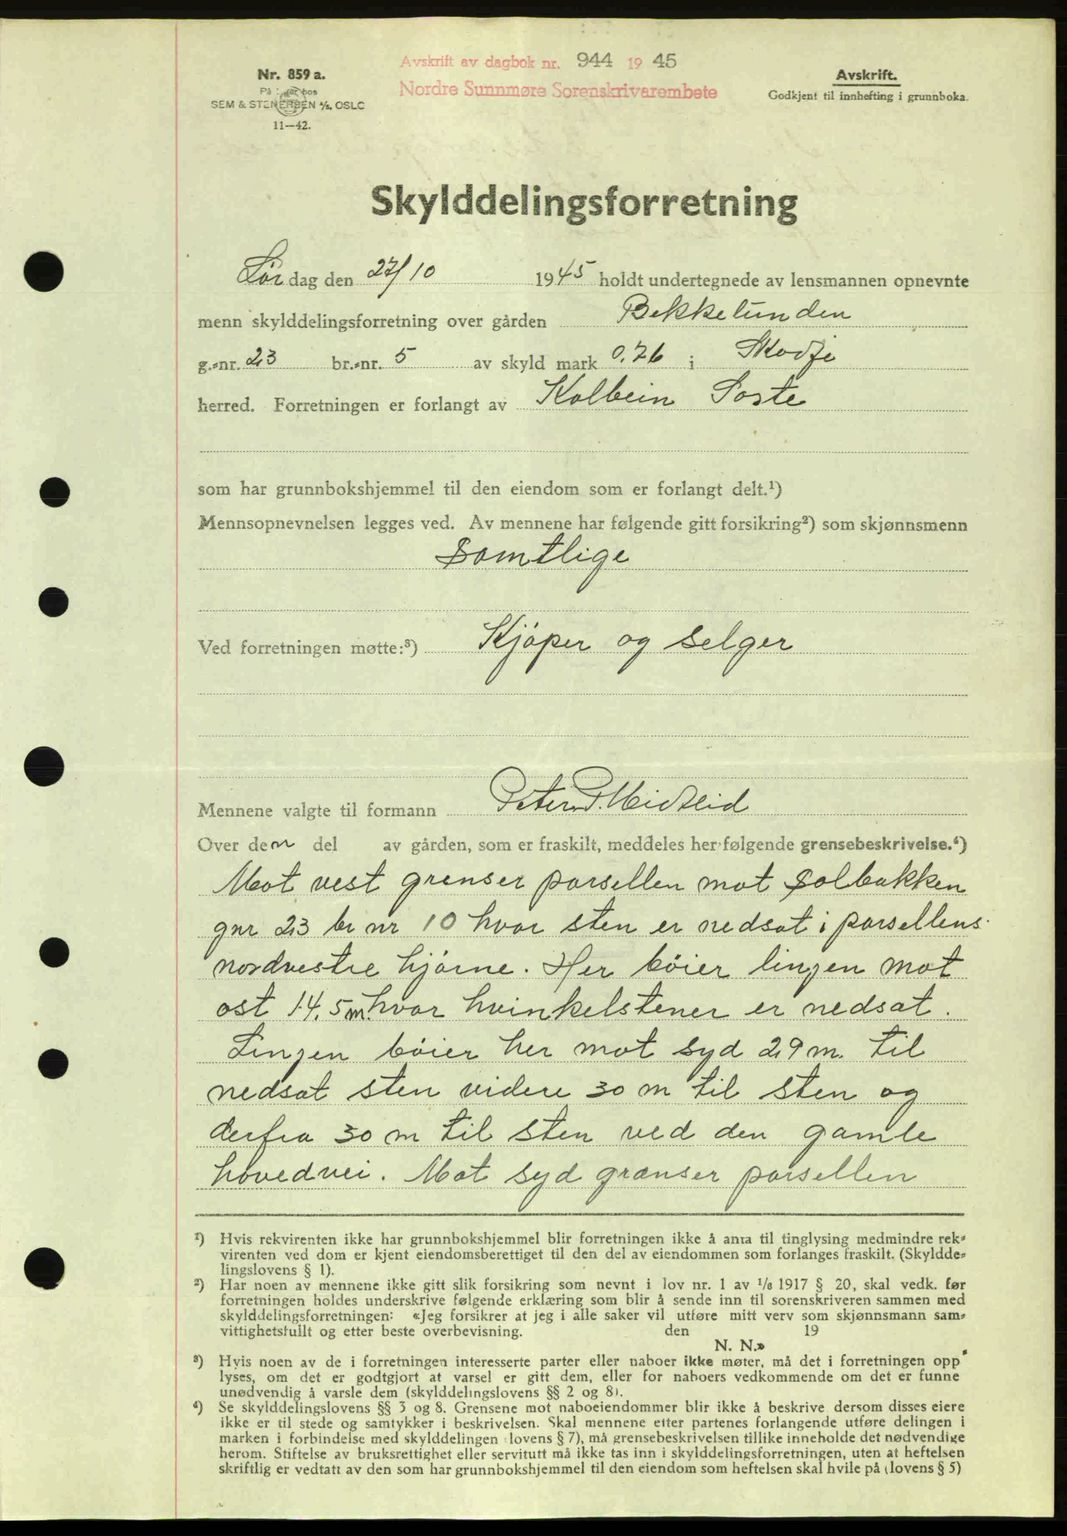 Nr. 859 a.
På : hos
SEM & STENERSEN A/S, OSLO
11—42.
Avskrift av dagbok nr. 944 1945
Nordre Sunnmøre Sorenskrivarembete
Avskrift.
Godkjent til innhefting i grunnboka.
Skylddelingsforretning
Lørdag den 27/10 1945 holdt undertegnede av lensmannen opnevnte
menn skylddelingsforretning over gården Bekkelunden
g.-nr. 23 br.-nr. 5 av skyld mark 0.76 i Skodje
herred. Forretningen er forlangt av Kolbein Soste
som har grunnbokshjemmel til den eiendom som er forlangt delt.¹)
Mennsopnevnelsen legges ved. Av mennene har følgende gitt forsikring²) som skjønnsmenn
Samtlige
Ved forretningen møtte:³) Kjøper og selger
Mennene valgte til formann Peter P. Midtlid
Over den del av gården, som er fraskilt, meddeles her følgende grensebeskrivelse.⁴)
Mot vest grenser parsellen mot Solbakken
gnr 23 br nr 10 hvor sten er nedsat i parsellens
nordvestre hjørne. Her bøier linjen mot
ost 14.5 m. hvor hvinkelstener er nedsat.
Linjen bøier her mot syd 29 m. til
nedsat sten videre 30 m til sten og
derfra 30 m til sten ved den gamle
hovedvei. Mot syd grænser parsellen
¹) Hvis rekvirenten ikke har grunnbokshjemmel blir forretningen ikke å anta til tinglysing medmindre rek-
virenten ved dom er kjent eiendomsberettiget til den del av eiendommen som forlanges fraskilt. (Skyldde-
lingslovens § 1).
²) Har noen av mennene ikke gitt slik forsikring som nevnt i lov nr. 1 av 1/6 1917 § 20, skal vedk. før
forretningen holdes underskrive følgende erklæring som blir å sende inn til sorenskriveren sammen med
skylddelingsforretningen: «Jeg forsikrer at jeg i alle saker vil utføre mitt verv som skjønnsmann sam-
vittighetsfullt og etter beste overbevisning. den 19
N. N.»
³) Hvis noen av de i forretningen interesserte parter eller naboer ikke møter, må det i forretningen opp-
lyses, om det er godtgjort at varsel er gitt dem, eller for naboers vedkommende om det er funne
unødvendig å varsle dem (skylddelingslovens §§ 2 og 8).
⁴) Se skylddelingslovens §§ 3 og 8. Grensene mot naboeiendommer blir ikke å beskrive dersom disses eiere
ikke er til stede og samtykker i beskrivelsen. Skal mennene etter partenes forlangende utføre delingen i
marken i forbindelse med skylddelingen (lovens § 7), må grensebeskrivelsen tillike inneholde det nødvendige
herom. Stiftelse av bruksrettighet eller servitutt må ikke tas inn i skylddelingsforretningen, uten at heftelsen
skriftlig er vedtatt av den som har grunnbokshjemmel til den eiendom som heftelsen skal hvile på (lovens § 5)